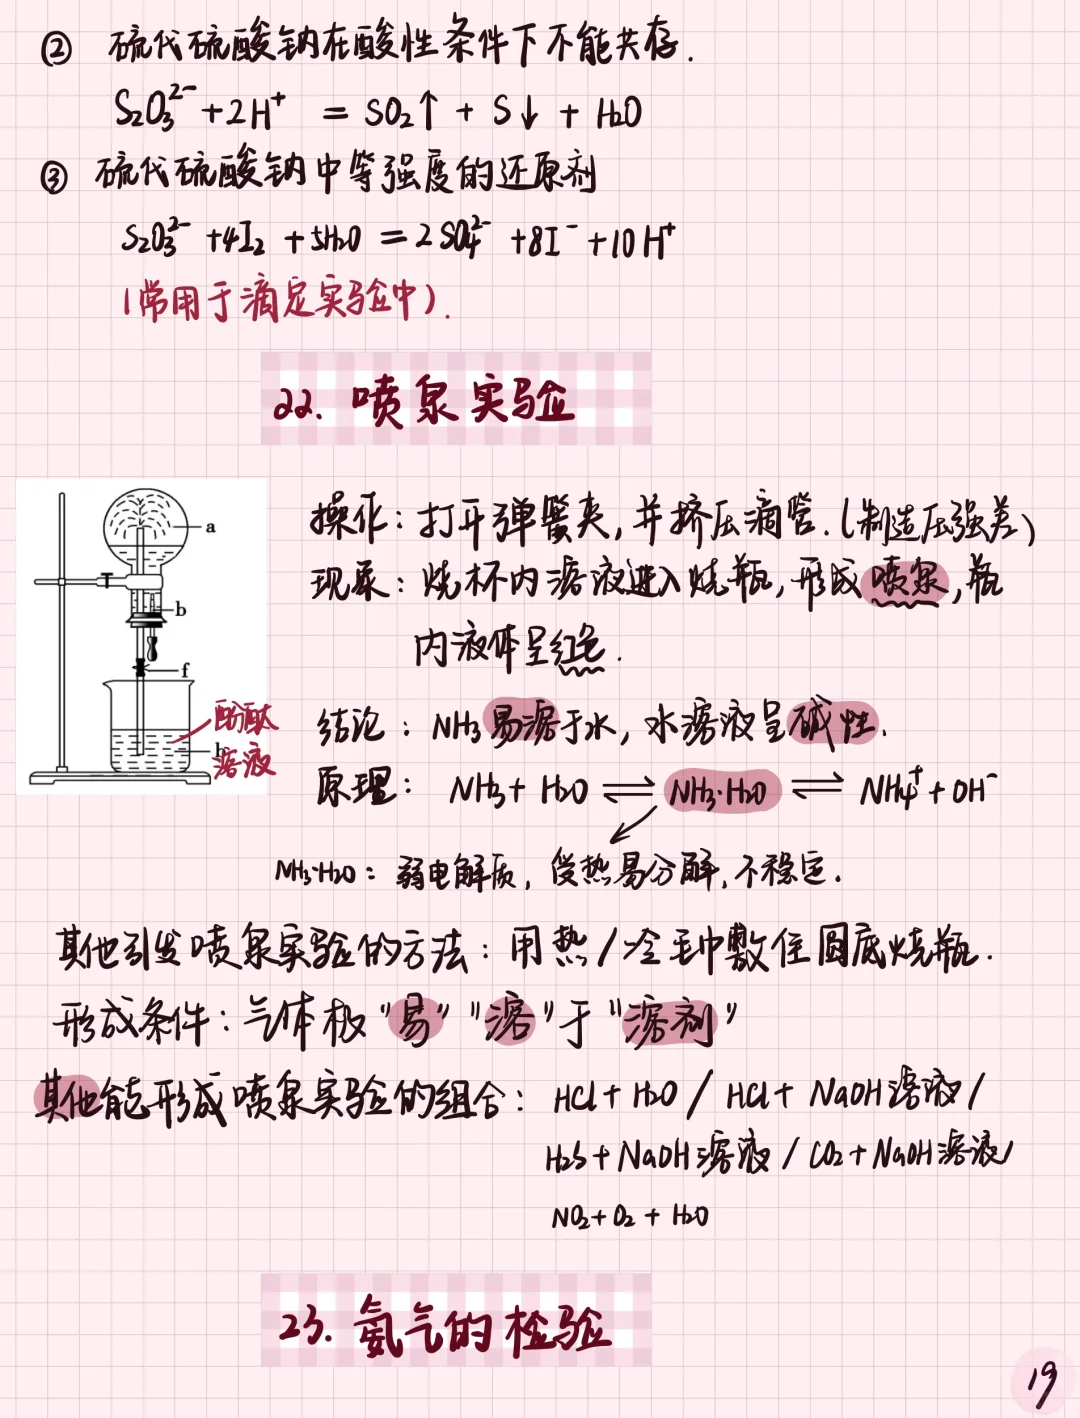 ② 硫代硫酸钠在酸性条件下不能共存.
S₂O₃²⁻+2H⁺ = SO₂↑ + S↓ + H₂O
③ 硫代硫酸钠中等强度的还原剂
S₂O₃²⁻+4I₂+5H₂O=2SO₄²⁻+8I⁻+10H⁺
(常用于滴定实验中).
22. 喷泉实验
a
b
f
酚酞
溶液
h
操作：打开弹簧夹,并挤压滴管.(制造压强差)
现象：烧杯内溶液进入烧瓶,形成喷泉,瓶
内液体呈红色.
结论：NH₃易溶于水,水溶液呈碱性.
原理：NH₃+H₂O ⇌ NH₃·H₂O ⇌ NH₄⁺+OH⁻
NH₃·H₂O：弱电解质,受热易分解,不稳定.
其他引发喷泉实验的方法：用热/冷毛巾敷住圆底烧瓶.
形成条件：气体极"易""溶"于"溶剂"
其他能形成喷泉实验的组合：HCl+H₂O / HCl+NaOH溶液/
H₂S+NaOH溶液/CO₂+NaOH溶液/
NO₂+O₂+H₂O
23. 氨气的检验
19